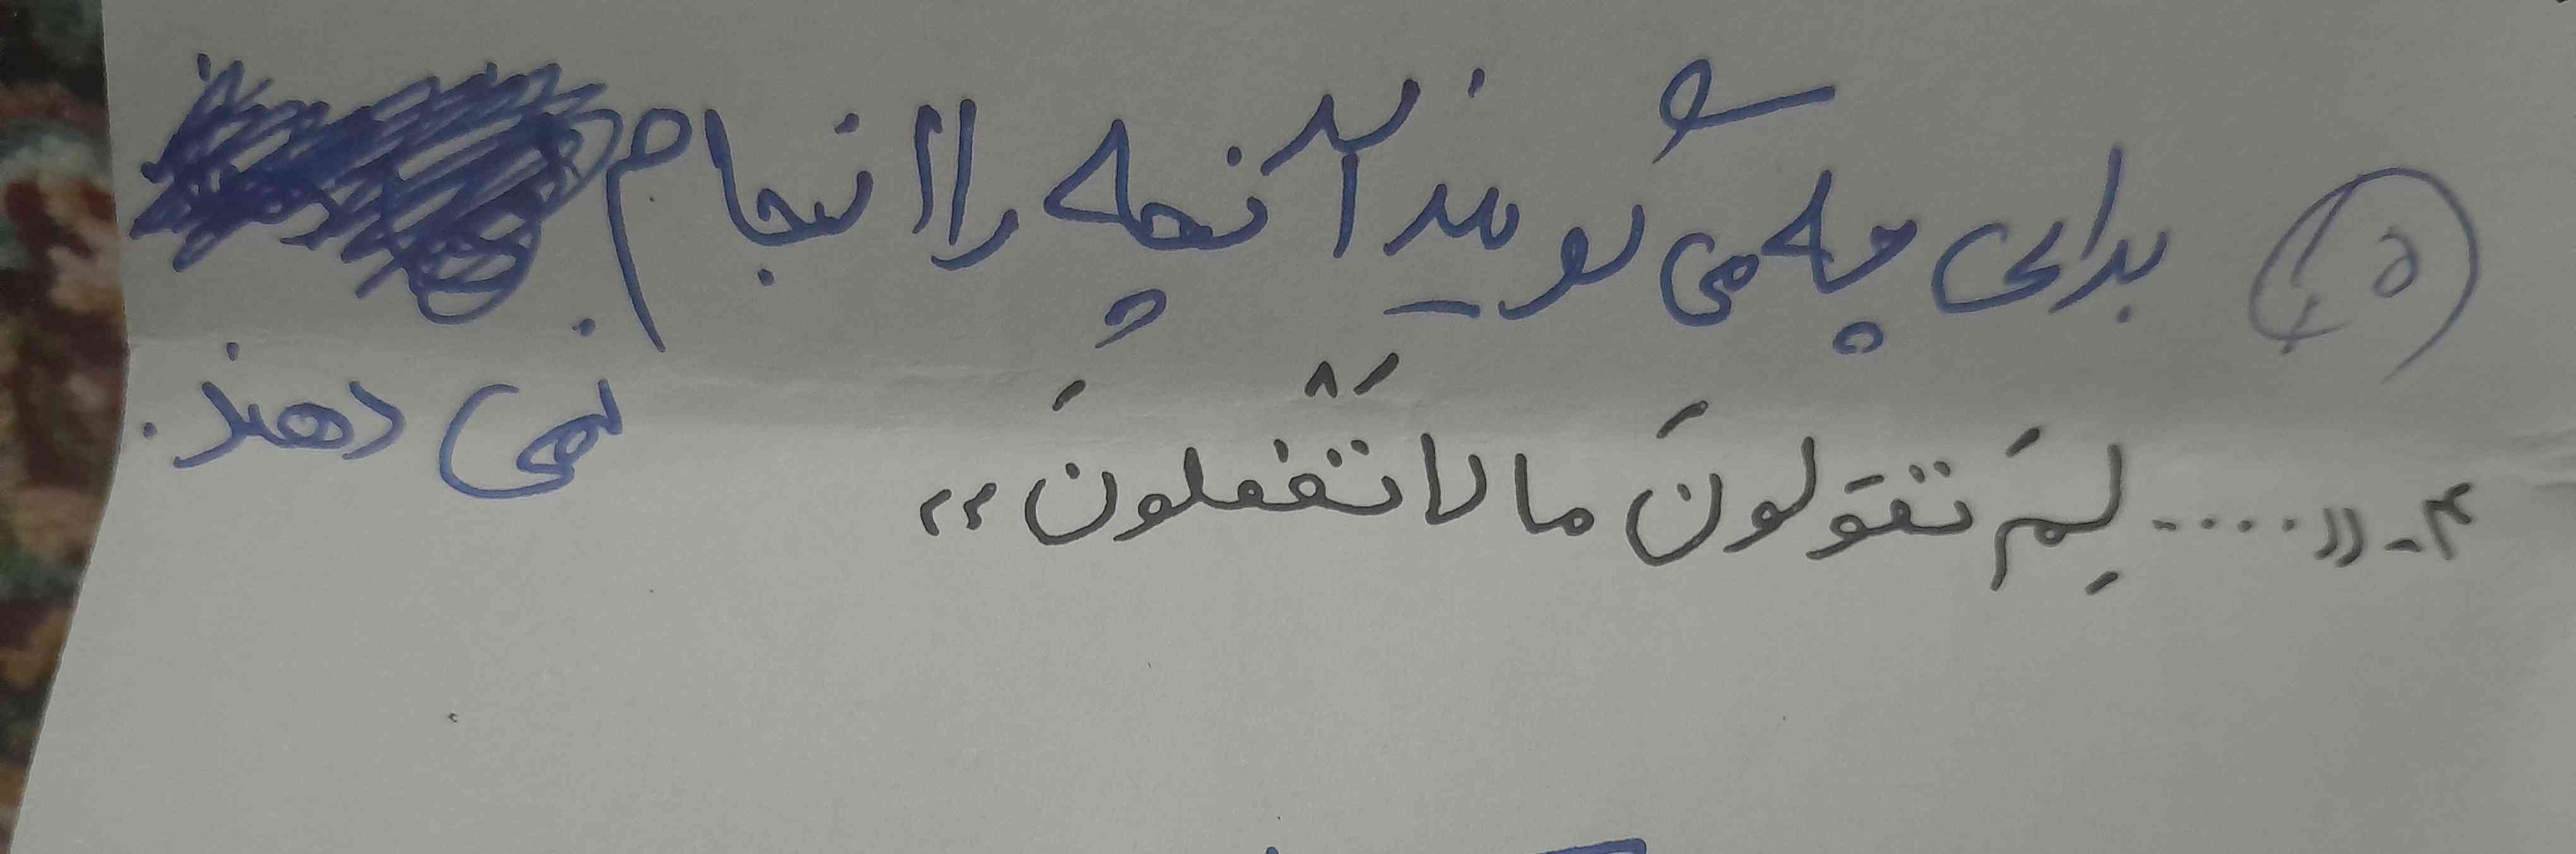 برای چه می گویند آنچه را انجام
نمی دهند.
۴- «..... لِمَ تَقولونَ ما لا تَفْعلونَ»